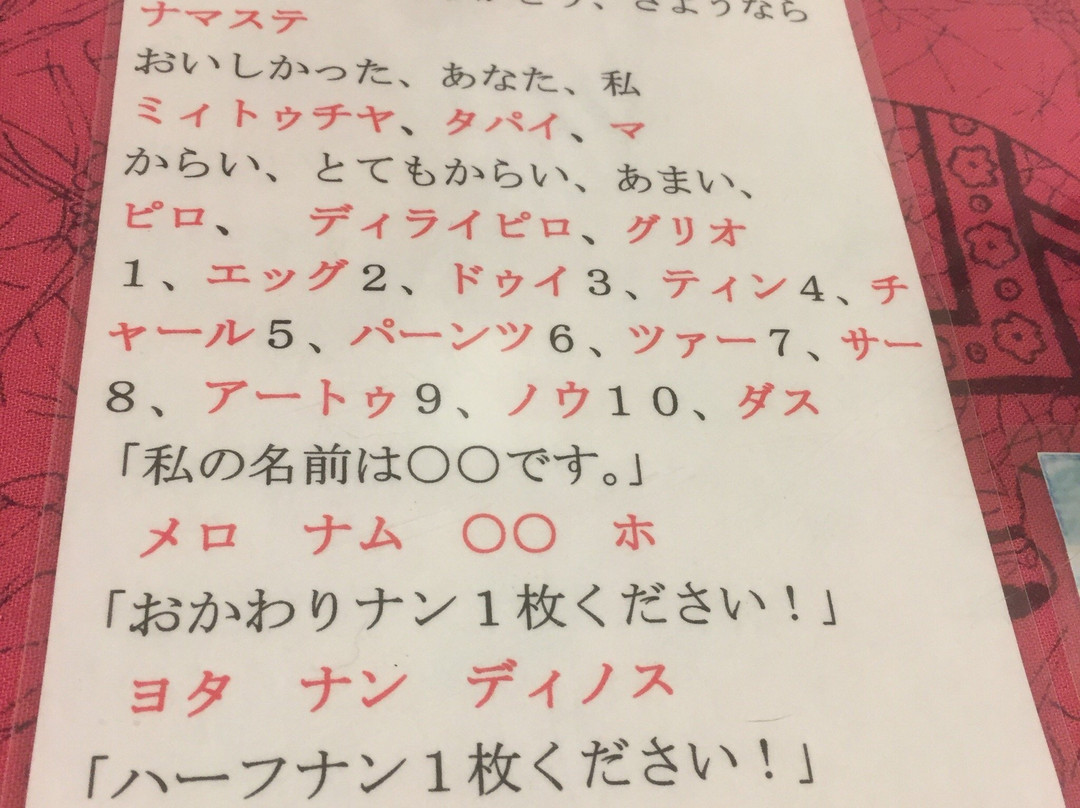 さようなら
ナマステ
おいしかった、あなた、私
ミィトゥチヤ、タパイ、マ
からい、とてもからい、あまい、
ピロ、　ディライピロ、グリオ
１、エッグ２、ドゥイ３、ティン４、チ
ャール５、パーンツ６、ツァー７、サー
８、アートゥ９、ノウ１０、ダス
「私の名前は〇〇です。」
メロ　ナム　〇〇　ホ
「おかわりナン１枚ください！」
ヨタ　ナン　ディノス
「ハーフナン１枚ください！」